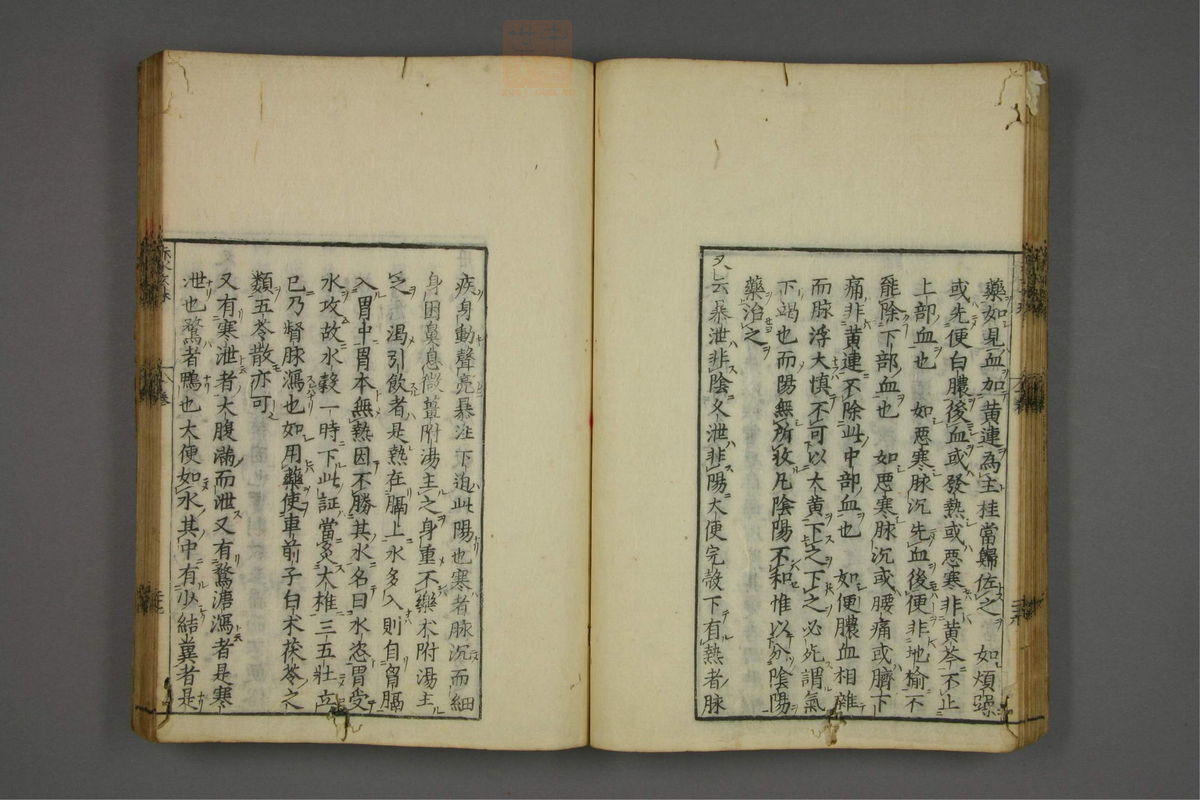 藥如見血加黃連為主桂當歸佐之 如煩躁
或先便白膿後血或發熱或惡寒非黃芩不止
上部血也 如惡寒脉沉先血後便非地榆不
能除下部血也 如惡寒脉沉或腰痛或臍下
痛非黃連不除此中部血也 如便膿血相雜
而脉浮大慎不可以大黃下之下之必死謂氣
下竭也而陽無所收凡陰陽不和惟以分陰陽
藥治之
又云暴泄非陰久泄非陽大便完穀下有熱者脉
疾身動聲亮暴注下迫此陽也寒者脉沉而細
身困鼻息微薑附湯主之身重不樂朮附湯主
之 渴引飲者是熱在膈上水多入則自胷膈
入胃中胃本無熱因不勝其水名曰水恣胃受
水攻故水穀一時下此証當灸大椎三五壯立
已乃督脉瀉也如用藥使車前子白术茯苓之
類五苓散亦可
又有寒泄者大腹滿而泄又有鶩溏瀉者是寒
泄也鶩者鴨也大便如水其中有少結糞者是